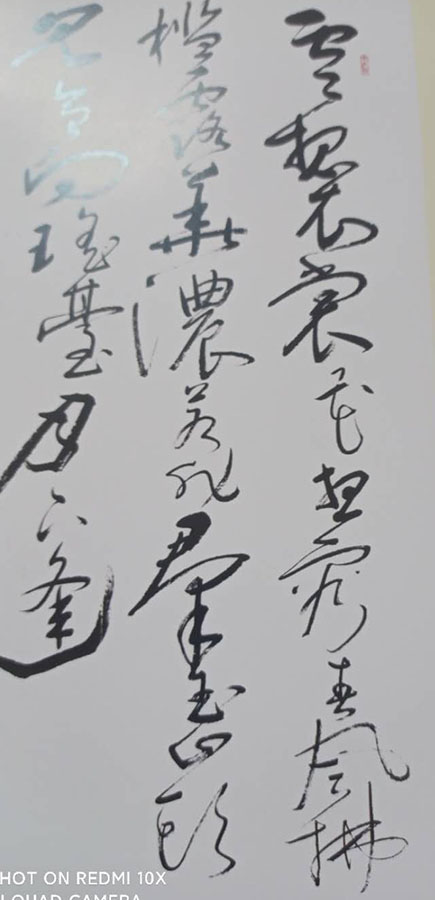 雲想衣裳花想容春風拂
檻露華濃若非羣玉山頭
見會向瑤臺月下逢
HOT ON REDMI 10X
QUAD CAMERA